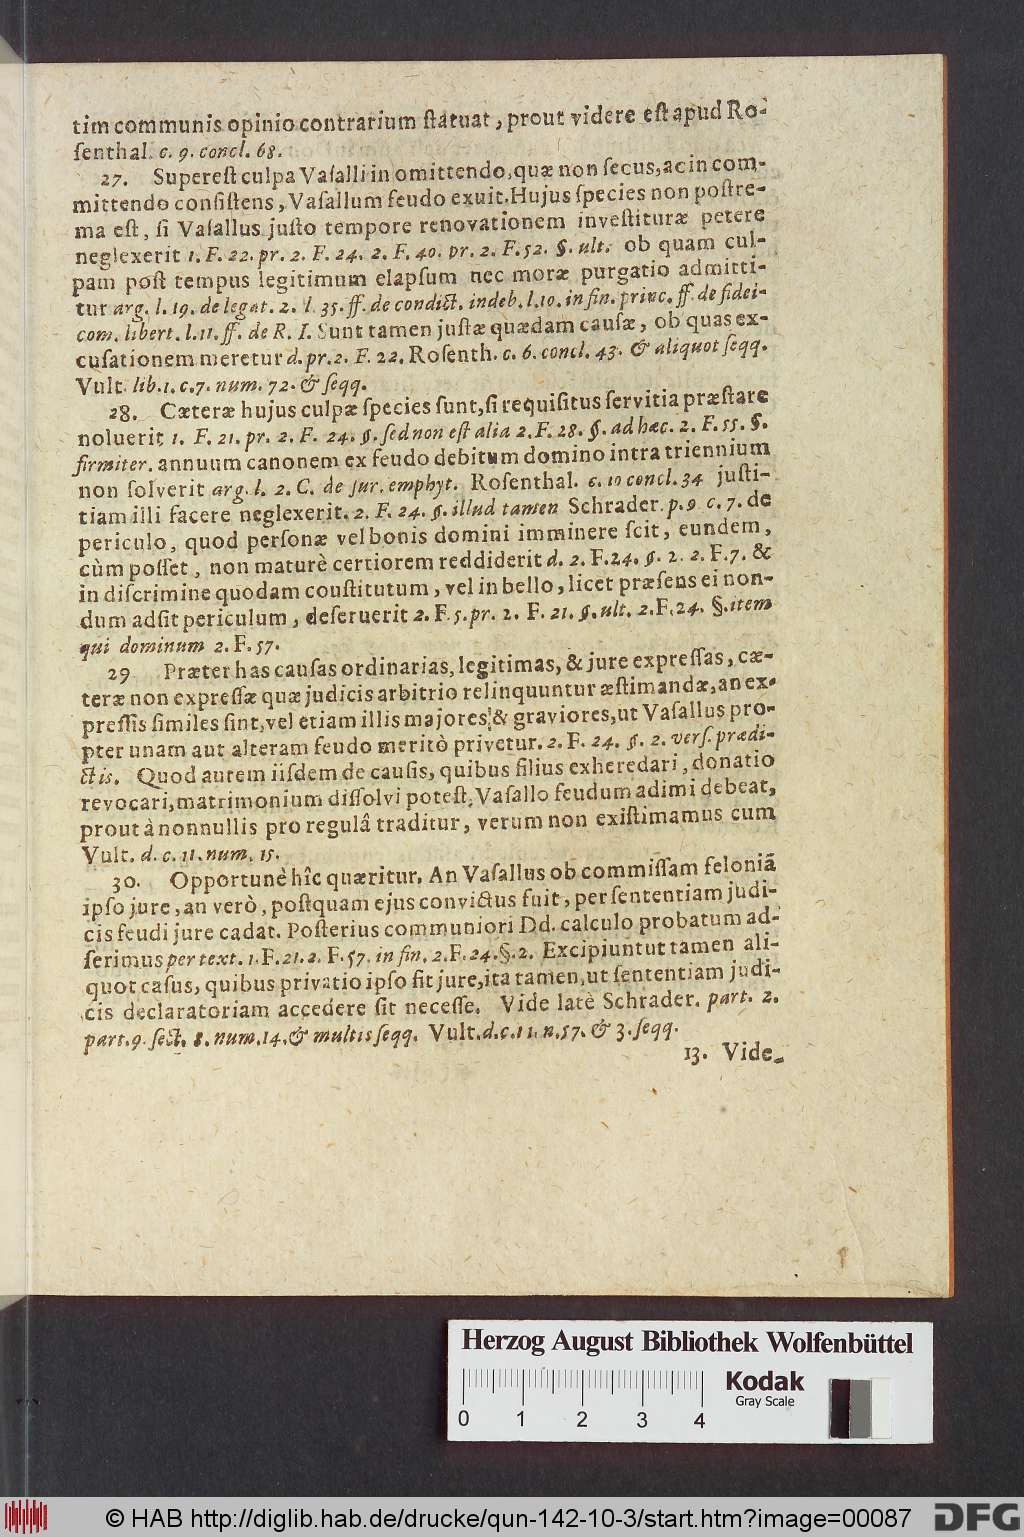 tim communis opinio contrarium ſtatuat, prout videre eſt apud Ro-
ſenthal. c. 9. concl. 68.
27. Supereſt culpa Vaſalli in omittendo, quæ non ſecus, ac in com-
mittendo conſiſtens, Vaſallum feudo exuit. Hujus ſpecies non poſtre-
ma eſt, ſi Vaſallus juſto tempore renovationem inveſtituræ petere
neglexerit 1. F. 22. pr. 2. F. 24. 2. F. 40. pr. 2. F. 52. §. ult. ob quam cul-
pam poſt tempus legitimum elapſum nec moræ purgatio admitti-
tur arg. l. 19. de legat. 2. l. 35. ff. de condict. indeb. l. 10. in fin. princ. ff. de fidei-
com. libert. l. 11. ff. de R. I. Sunt tamen juſtæ quædam cauſæ, ob quas ex-
cuſationem meretur d. pr. 2. F. 22. Roſenth. c. 6. concl. 43. & aliquot ſeqq.
Vult. lib. 1. c. 7. num. 72. & ſeqq.
28. Cæteræ hujus culpæ ſpecies ſunt, ſi requiſitus ſervitia præſtare
noluerit 1. F. 21. pr. 2. F. 24. §. ſed non eſt alia 2. F. 28. §. ad hæc. 2. F. 55. §.
firmiter. annuum canonem ex feudo debitum domino intra triennium
non ſolverit arg. l. 2. C. de jur. emphyt. Roſenthal. c. 10 concl. 34 juſti-
tiam illi facere neglexerit. 2. F. 24. §. illud tamen Schrader. p. 9 c. 7. de
periculo, quod perſonæ vel bonis domini imminere ſcit, eundem,
cùm poſſet, non maturè certiorem reddiderit d. 2. F. 24. §. 2. 2. F. 7. &
in diſcrimine quodam conſtitutum, vel in bello, licet præſens ei non-
dum adſit periculum, deſeruerit 2. F. 5. pr. 2. F. 21. §. ult. 2. F. 24. §. item
qui dominum 2. F. 57.
29 Præter has cauſas ordinarias, legitimas, & jure expreſſas, cæ-
teræ non expreſſæ quæ judicis arbitrio relinquuntur æſtimandæ, an ex-
preſſis ſimiles ſint, vel etiam illis majores, & graviores, ut Vaſallus pro-
pter unam aut alteram feudo meritò privetur. 2. F. 24. §. 2. verſ. prædi-
ctis. Quod autem iiſdem de cauſis, quibus filius exheredari, donatio
revocari, matrimonium diſſolvi poteſt, Vaſallo feudum adimi debeat,
prout à nonnullis pro regulâ traditur, verum non exiſtimamus cum
Vult. d. c. 11. num. 15.
30. Opportunè hîc quæritur. An Vaſallus ob commiſſam feloniã
ipſo jure, an verò, poſtquam ejus convictus fuit, per ſententiam judi-
cis feudi jure cadat. Poſterius communiori Dd. calculo probatum ad-
ſerimus per text. 1. F. 21. 2. F. 57. in fin. 2. F. 24. §. 2. Excipiuntut tamen ali-
quot caſus, quibus privatio ipſo fit jure, ita tamen, ut ſententiam judi-
cis declaratoriam accedere ſit neceſſe. Vide latè Schrader. part. 2.
part. 9. ſect. 8. num. 14. & multis ſeqq. Vult. d. c. 11. n. 57. & 3. ſeqq.
13. Vide-
Herzog August Bibliothek Wolfenbüttel
Kodak
Gray Scale
0 1 2 3 4
© HAB http://diglib.hab.de/drucke/qun-142-10-3/start.htm?image=00087
DFG